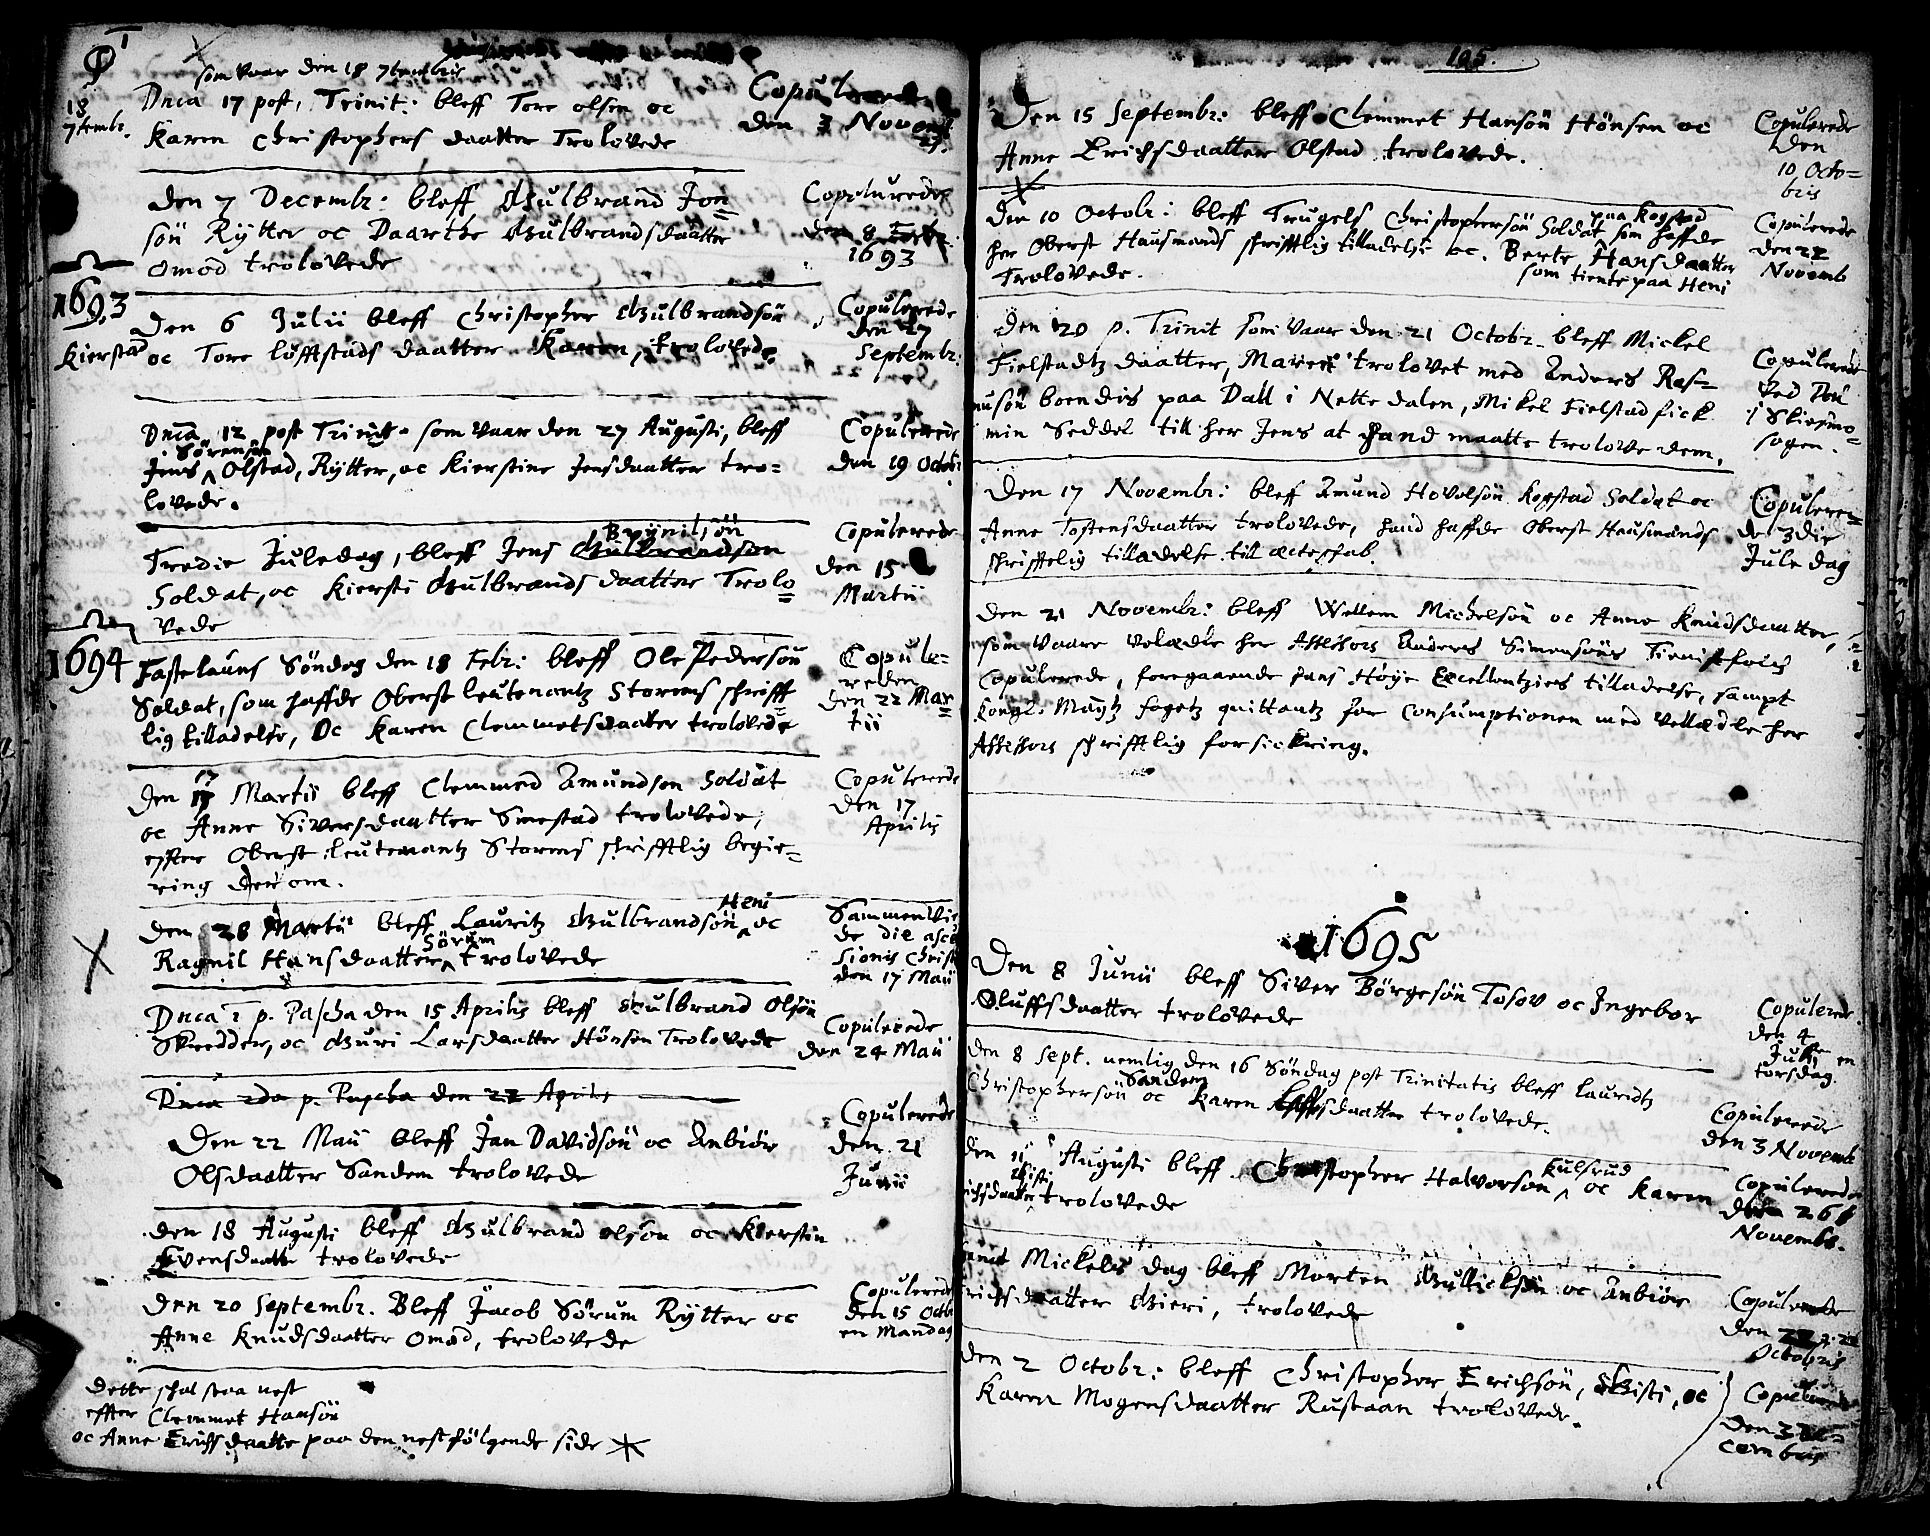 som vaar den 18 7tembris
18
7tembr.
Dnca 17 post, Trinit: bleff Tore olsen oc
Karen Christophers daatter Trolovede
Copulerede
den 3 Novemb
den 7 Decembr: bleff Gulbrand Jon=
sön Rÿtter oc Daarthe Gulbrandsdaatter
Omod trolovede
Copoluredes
den 8 Febr:
1693
1693
Kierstad
Den 6 Julii bleff Christopher Gulbrandsön
oc Tore löfftstads daatter Karen, trolovede
Copulerede
den 27
Septembr:
Dnca 12 post Trinit. som vaar den 27 Augusti, bleff
Sörensön
Jens Olstad, Rÿtter, oc Kierstine Jensdaatter tro=
lovede.
Copulerede
den 19 Octobr
Brÿnilsön
Tredie Juledag, bleff Jens Gulbrandsön
Soldat, oc Kiersti Gulbrands daatter Trolo=
vede
Copulerede
den 15
Martii
1694
Fastelauns Söndag den 18 Febr: bleff Ole Pedersön
Soldat, som haffde Oberst leutenantz Storms schrifft=
lig tilladelse, Oc Karen Clemmetsdaatter trolovede
Copule=
rede den
den 22 Mar=
tii
den 17 Martii bleff Clemmed Amundsen Soldat
oc Anne Siversdaatter Smestad trolovede,
effter Oberst leutenantz Storms schrifftlig begie=
ring der om.
Copulerede
den 17
Aprilis
Heni
den 28 Martii bleff Lauritz Gulbrandsön oc
Sörum
Ragnil Hansdaatter trolovede
Sammenvie
de die asce
sionis Christi
den 17 Maii
Dnca 1 p. Pascha den 15 Aprilis bleff Gulbrand Olsön
Skredder, oc Guri Larsdaatter Hönsen Trolovede
Copulerede
den 24 Maii
Dnca 2da p. Pascha den 22 Aprilis
Den 22 Maii bleff Jan Davidsön oc Anbiör
Olsdaatter Sandem trolovede
Copulerede
den 21
Junii
den 18 Augusti bleff Gulbrand olsön oc Kierstin
Evensdaatte trolovede
den 20 Septembr. Bleff Jacob Sörum Rÿtter oc
Anne Knudsdaatter Omod, trolovede
Copulerede
den 15 Octb
en Mandag
Dette schal staa nest
effter Clemmet Hansön
oc Anne Erichsdaatte paa den nestfölgende side
105.
Den 15 Septembr: bleff Clemmet Hansön Hönsen oc
Anne Erichsdaatter Olstad trolovede.
Copulerede
den
10 Octo=
bris
paa Kogstad
Den 10 Octobr: bleff Trugels Christophersön Soldat som haffde
her Oberst Hausmands schrifftlig tilladelse oc. Berte Hansdaatter
Trolovede.
som tiente paa Heni
Copulerede
den 22
Novemb
den 20 p. Trinit som vaar den 21 Octobr. bleff Mickel
Fielstadtz daatter, Maren trolovet med Anders Ras=
musön boendis paa Dall i Nettedalen, Mikel Fielstad fick
min Seddel till her Jens at hand maatte trolove dem.
Copulerede
ved
i Skiesmo=
sogen.
Den 17 Novembr: bleff Amund Hovelsön Kogstad Soldat oc
Anne Tostensdaatter trolovede, hand haffde Oberst Hausmands
schrifftelig tilladelse till ecteschab.
Copulerer=
de 3die
Jule dag
den 21 Novembr: bleff Wellem Michelsön oc Anne Knudsdaatter,
som vaare velædle her Assessors Anders Simensöns Tienistefolch
Copulerede, foregaaende hans Höÿe Excellentziers tilladelse, sampt
Kongl. Maÿtz fogetz quittantz for Consumptionen med Vellædle her
Assessors schrifftlig forsickring.
1695
Den 8 Junii bleff Siver Börgesön Tosov oc Ingebor
Oluffsdaatter trolovede
Copulerede
den 4
Julii en
torsdag.
den 8 Sept. nemlig den 16 Söndag post Trinitatis bleff Lauridtz
Sandem
Christophersön oc Karen daatter trolovede.
Copulerede
den 3 Novemb
den 11 Augusti bleff Christopher Halvorsön Kulsrud oc Karen
richsdaatter trolovede
Copulerede
den 26
Novemb.
Sanct Mickels dag bleff Morten Gullicksön oc Anbiör
richsdaatter Gieri, trolovede
Copulerede
den 22
Octobris
den 2 Octobr: bleff Christopher Erichsön, Gisti, oc
Karen Mogensdaatter Rustaan trolovede.
Copulerede
den 3 De=
cembris